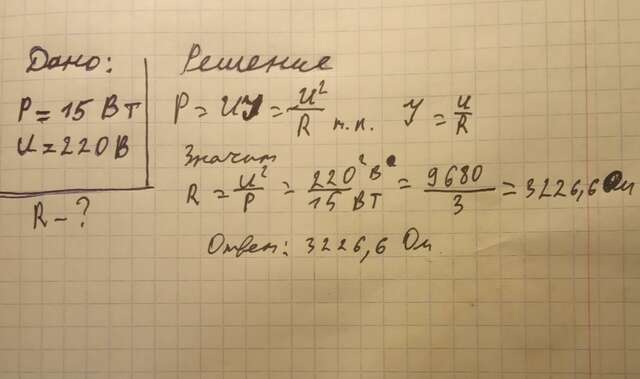 Дано:
P = 15 Вт
U = 220 В
R - ?
Решение
P = UI = U²/R т.к. I = U/R
Значит
R = U²/P = 220² В²/15 Вт = 9680/3 = 3226,6 Ом
Ответ: 3226,6 Ом